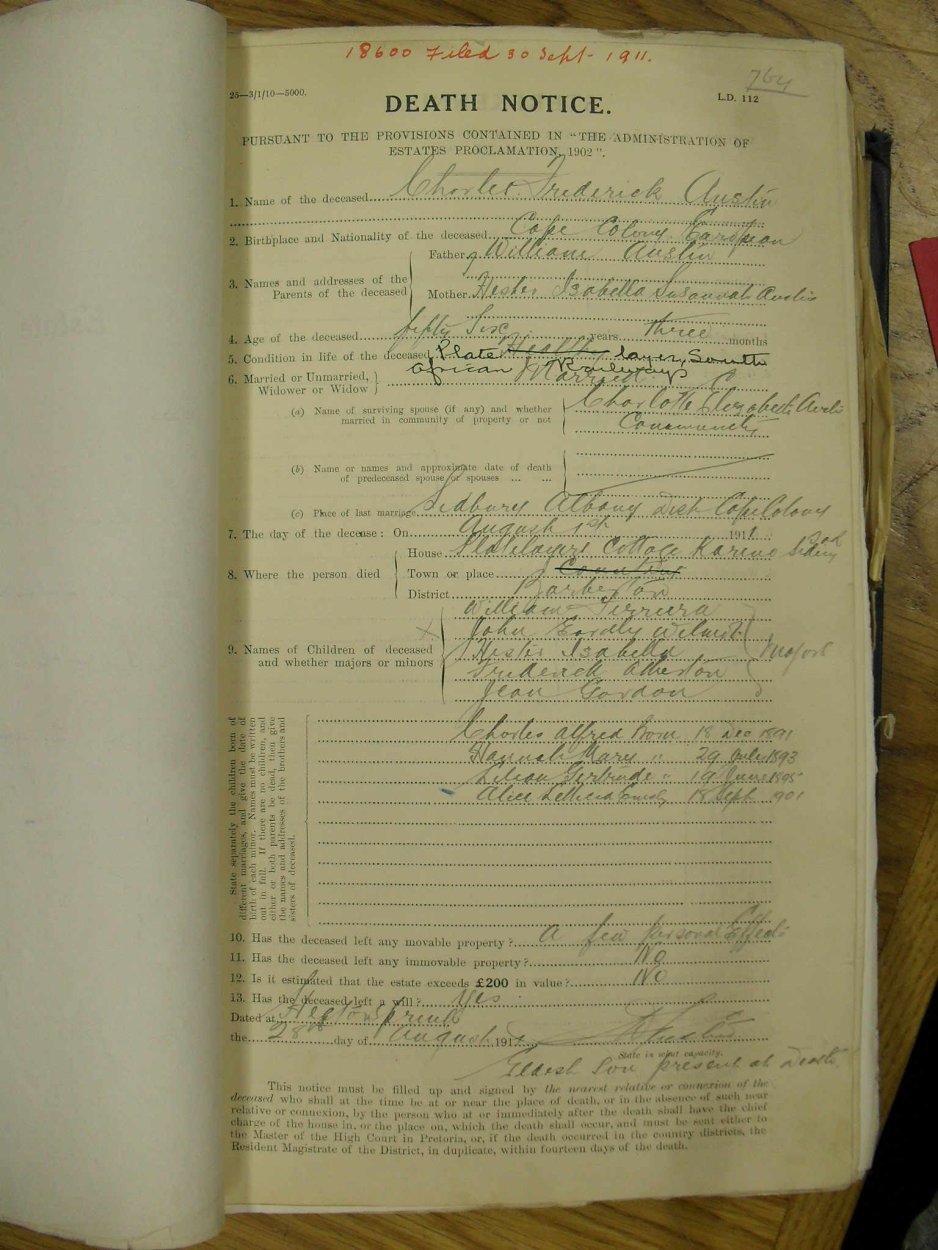 18600 Filed 30 Sept. 1911.
764
25—3/1/10—5000.
L.D. 112
DEATH NOTICE.
PURSUANT TO THE PROVISIONS CONTAINED IN "THE ADMINISTRATION OF
ESTATES PROCLAMATION, 1902".
1. Name of the deceased Charles Frederick Austin
2. Birthplace and Nationality of the deceased Cape Colony European
3. Names and addresses of the Parents of the deceased
Father William Austin
Mother Hester Isabella Susannah Austin
4. Age of the deceased fifty Six years three months
5. Condition in life of the deceased Plate layer South
African Railways
6. Married or Unmarried, Widower or Widow Married
(a) Name of surviving spouse (if any) and whether Charlotte Elizabeth Austin
married in community of property or not Community
(b) Name or names and approximate date of death
of predeceased spouse or spouses ... ...
(c) Place of last marriage Sidbury Albany Dist Cape Colony
7. The day of the decease: On August 1st 1911
8. Where the person died
House Platelayers Cottage Karino Siding
Town or place
District Barberton
9. Names of Children of deceased
and whether majors or minors
William
John Eardly Wilmot
Hester Isabella
Frederick
Jean Gordon
Majors
State separately the children born of
different marriages, and give the date of
birth of each minor. Names must be written
out in full. If there are no children, and
either or both parents be dead, then give
the names and addresses of the brothers and
sisters of deceased.
Charles Alfred Born 18 Dec 1891
Hannah Mary " 29 July 1893
Lilian Gertrude " 19 June 1895
Alice 18 Sept 1901
10. Has the deceased left any movable property? A few personal Effects
11. Has the deceased left any immovable property? No
12. Is it estimated that the estate exceeds £200 in value? No
13. Has the deceased left a will? Yes
Dated at Hector Spruit
the 28th day of August 191
State in what capacity.
Eldest Son present at Death
This notice must be filled up and signed by the nearest relative or connexion of the
deceased who shall at the time be at or near the place of death, or in the absence of such near
relative or connexion, by the person who at or immediately after the death shall have the chief
charge of the house in, or the place on, which the death shall occur, and must be sent either to
the Master of the High Court in Pretoria, or, if the death occurred in the country districts, the
Resident Magistrate of the District, in duplicate, within fourteen days of the death.